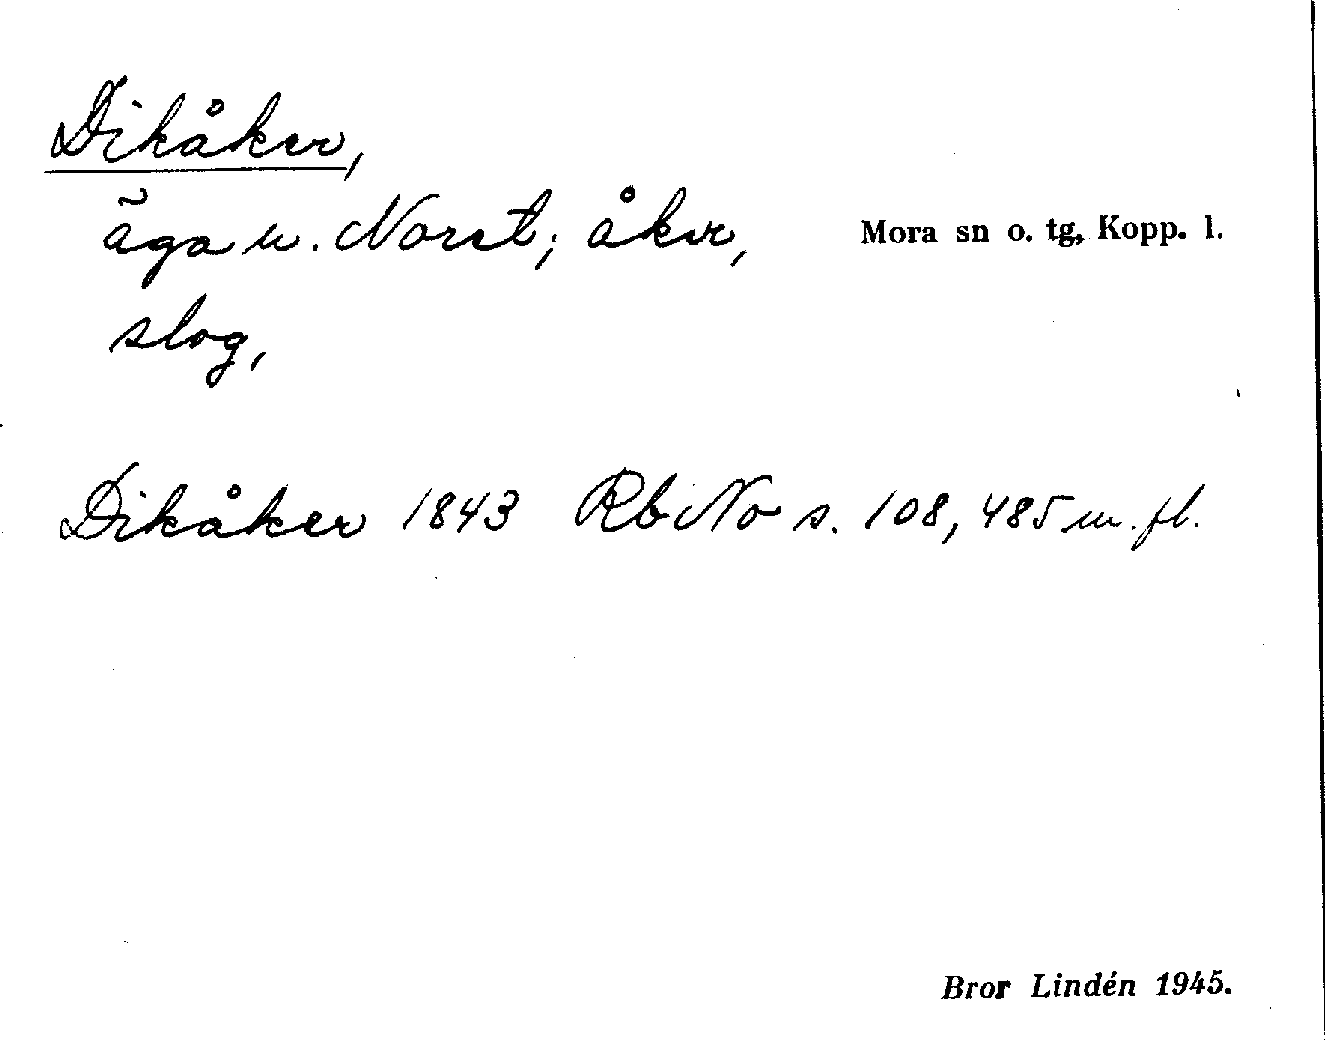 Dikåker,
äga u. Noret; åker,
Mora sn o. tg, Kopp. l.
slog,
Dikåker 1843 Rb No s. 108, 485 m. fl.
Bror Lindén 1945.